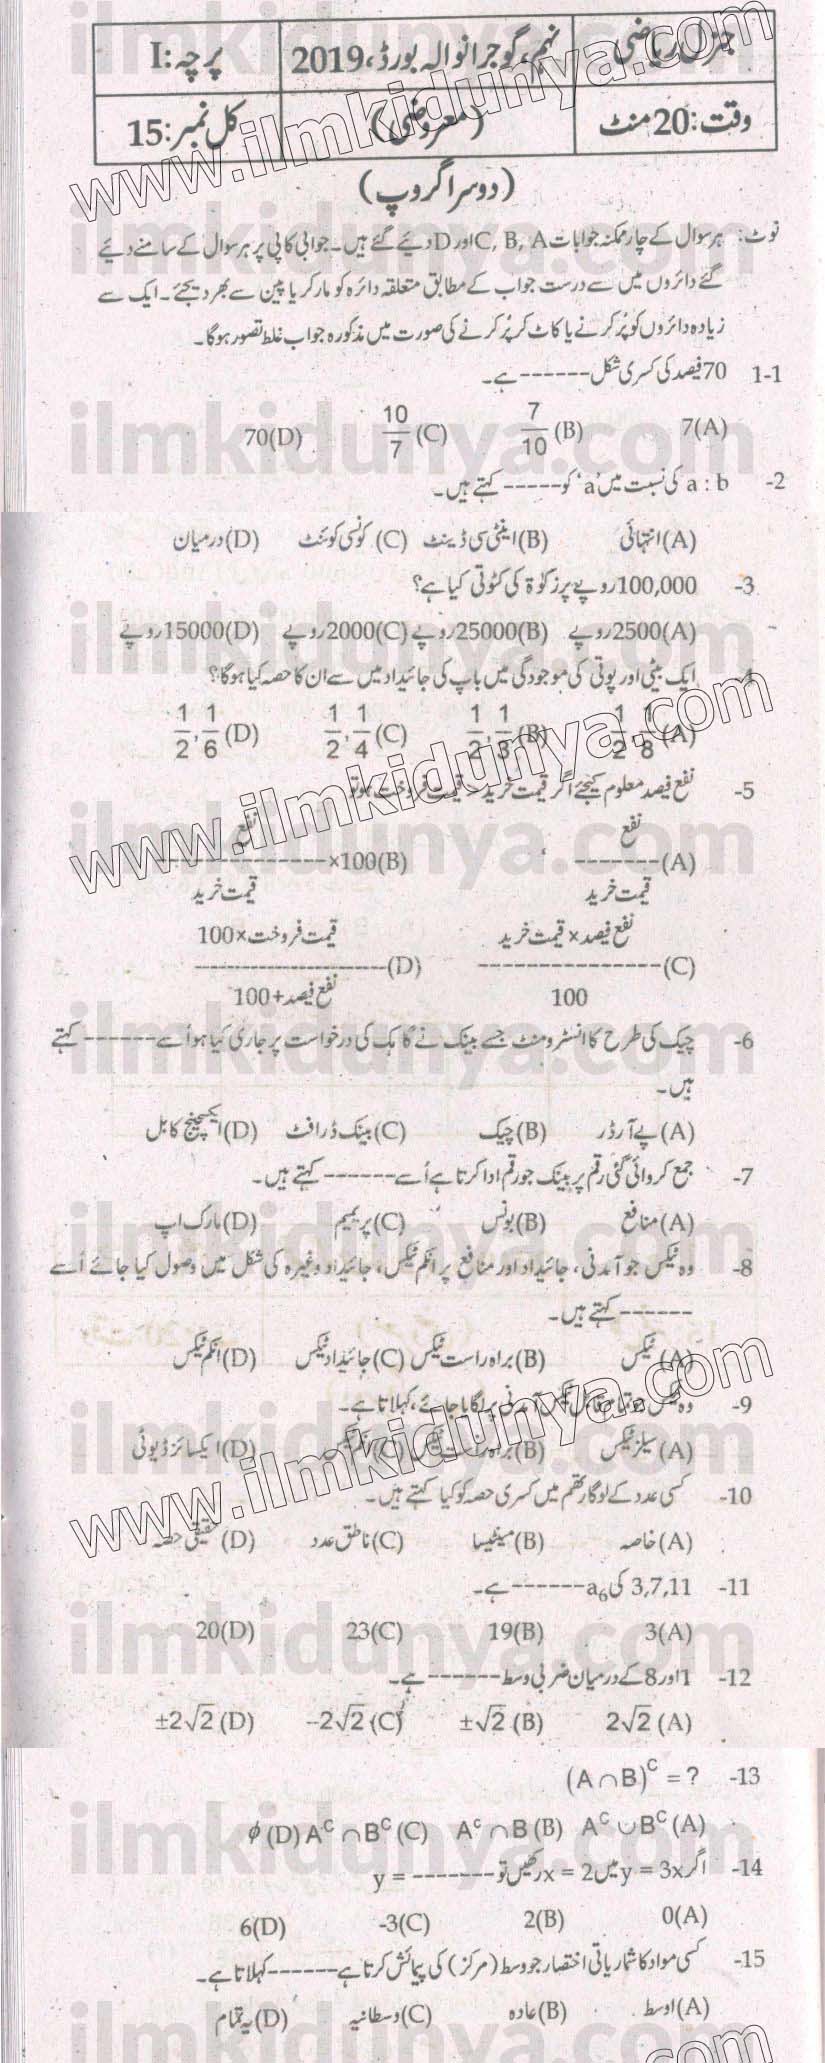 جنرل ریاضی	نہم، گوجرانوالہ بورڈ، 2019	پرچہ: I
وقت: 20 منٹ	(معروضی)	کل نمبر: 15
(دوسرا گروپ)
نوٹ: ہر سوال کے چار ممکنہ جوابات C, B, A اور D دیئے گئے ہیں۔ جوابی کاپی پر ہر سوال کے سامنے دیئے
گئے دائروں میں سے درست جواب کے مطابق متعلقہ دائرہ کو مارکر یا پین سے بھر دیجئے۔ ایک سے
زیادہ دائروں کو پُر کرنے یا کاٹ کر پُر کرنے کی صورت میں مذکورہ جواب غلط تصور ہوگا۔
1-1 70 فیصد کی کسری شکل ------ ہے۔
(A) 7 (B) 7/10 (C) 10/7 (D) 70
2- a : b کی نسبت میں 'a' کو ----- کہتے ہیں۔
(A) انتہائی (B) اینٹی سی ڈینٹ (C) کونسی کوئنٹ (D) درمیان
3- 100,000 روپے پر زکوٰۃ کی کٹوتی کیا ہے؟
(A) 2500 روپے (B) 25000 روپے (C) 2000 روپے (D) 15000 روپے
4- ایک بیٹی اور پوتی کی موجودگی میں باپ کی جائیداد میں سے ان کا حصہ کیا ہوگا؟
(A) 1/2, 1/8 (B) 1/2, 1/3 (C) 1/2, 1/4 (D) 1/2, 1/6
5- نفع فیصد معلوم کیجئے اگر قیمت خرید < قیمت فروخت ہو تو
(A) نفع / قیمت خرید (B) نفع / قیمت خرید ×100
(C) نفع فیصد × قیمت خرید / 100 (D) قیمت فروخت ×100 / نفع فیصد +100
6- چیک کی طرح کا انسٹرومنٹ جسے بینک نے گاہک کی درخواست پر جاری کیا ہو اُسے ------ کہتے
ہیں۔
(A) پے آرڈر (B) چیک (C) بینک ڈرافٹ (D) ایکسچینج کا بل
7- جمع کروائی گئی رقم پر بینک جو رقم ادا کرتا ہے اُسے ------ کہتے ہیں۔
(A) منافع (B) بونس (C) پریمیم (D) مارک اپ
8- وہ ٹیکس جو آمدنی، جائیداد اور منافع پر انکم ٹیکس، جائیداد وغیرہ کی شکل میں وصول کیا جائے اُسے
------ کہتے ہیں۔
(A) ٹیکس (B) براہ راست ٹیکس (C) جائیداد ٹیکس (D) انکم ٹیکس
9- وہ ٹیکس جو تمام قابل ٹیکس آمدنی پر لگایا جائے، کہلاتا ہے۔
(A) سیلز ٹیکس (B) براہ راست ٹیکس (C) انکم ٹیکس (D) ایکسائز ڈیوٹی
10- کسی عدد کے لوگارتھم میں کسری حصہ کو کیا کہتے ہیں۔
(A) خاصہ (B) مینٹیسا (C) ناطق عدد (D) حقیقی حصہ
11- 3,7,11 کی a₆ ------ ہے۔
(A) 3 (B) 19 (C) 23 (D) 20
12- 1 اور 8 کے درمیان ضربی وسط ------ ہے۔
(A) 2√2 (B) ±√2 (C) −2√2 (D) ±2√2
13- (A ∩ B)ᶜ = ?
(A) Aᶜ ∪ Bᶜ (B) Aᶜ ∩ B (C) Aᶜ ∩ Bᶜ (D) ϕ
14- اگر y = 3x میں x = 2 رکھیں تو y = -------
(A) 0 (B) 2 (C) -3 (D) 6
15- کسی مواد کا شماریاتی اختصار جو وسط (مرکز) کی پیمائش کرتا ہے ------ کہلاتا ہے۔
(A) اوسط (B) عادہ (C) وسطانیہ (D) یہ تمام
www.ilmkidunya.com
ilmkidunya.com